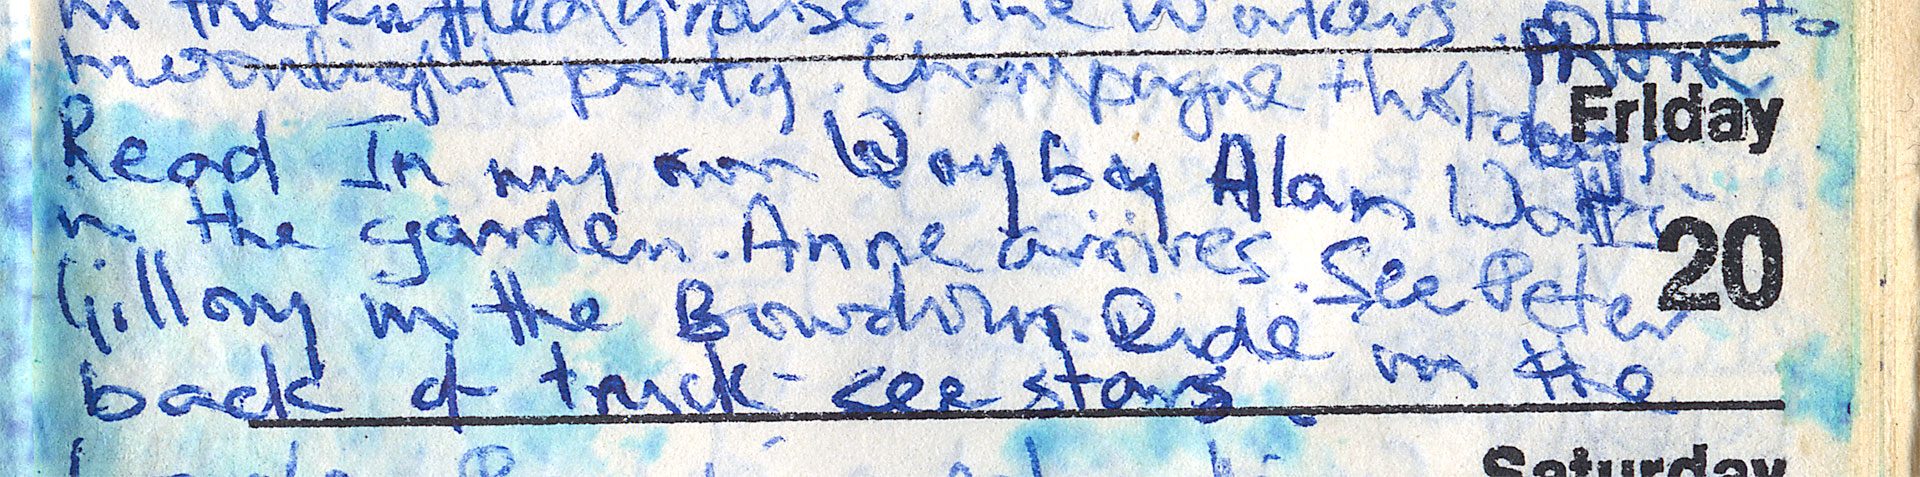 in the Ruffled grouse. The Workers. off to
moonlight party. Champagne that
Friday
Read In my own Way by Alan Watts
in the garden. Anne arrives. See Peter
20
Gillory in the Bowdoin. Ride in the
back of truck - see stars
Saturday